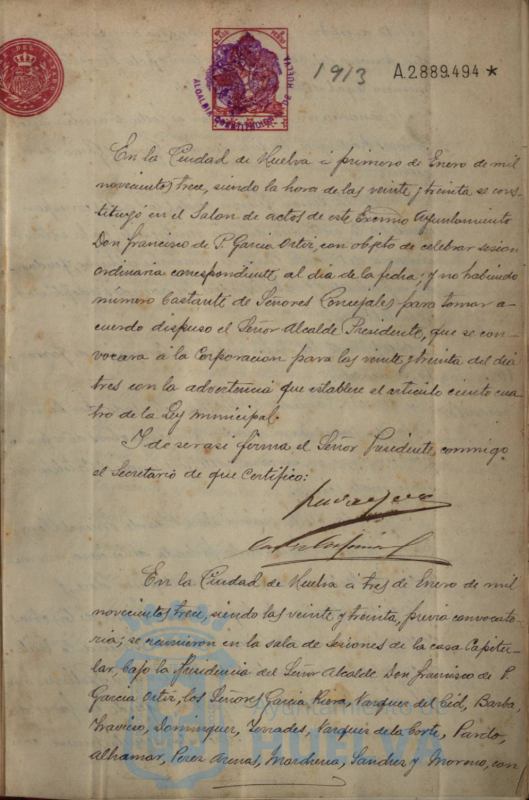 1913 A.2889.494 *
ALCALDIA CONSTITUCIONAL DE HUELVA
En la Ciudad de Huelva á primero de Enero de mil
novecientos trece, siendo la hora de las veinte y treinta se cons-
tituyó en el Salon de actos de este Excmo Ayuntamiento
Don Francisco de P. Garcia Ortiz, con objeto de celebrar sesion
ordinaria correspondiente al dia de la fecha; y no habiendo
número bastante de Señores Concejales para tomar a-
cuerdo dispuso el Señor Alcalde Presidente, que se con-
vocara á la Corporacion para las veinte y treinta del dia
tres con la advertencia que establece el articulo ciento cua-
tro de la Ley Municipal.
Y de ser asi firma el Señor Presidente, conmigo
el Secretario de que Certifico:
En la Ciudad de Huelva á tres de Enero de mil
novecientos trece, siendo las veinte y treinta, previa convocato-
ria; se reunieron en la sala de sesiones de la casa Capitu-
lar, bajo la Presidencia del Señor Alcalde Don Francisco de P.
Garcia Ortiz, los Señores Garcia Riera, Vazquez del Cid, Barba,
Travieso, Dominguez, Terrades, Vazquez de la Corte, Pardo,
Alhamar, Perez Arenas, Marchena, Sanchez y Moreno, con
Ayuntamiento de
HUELVA